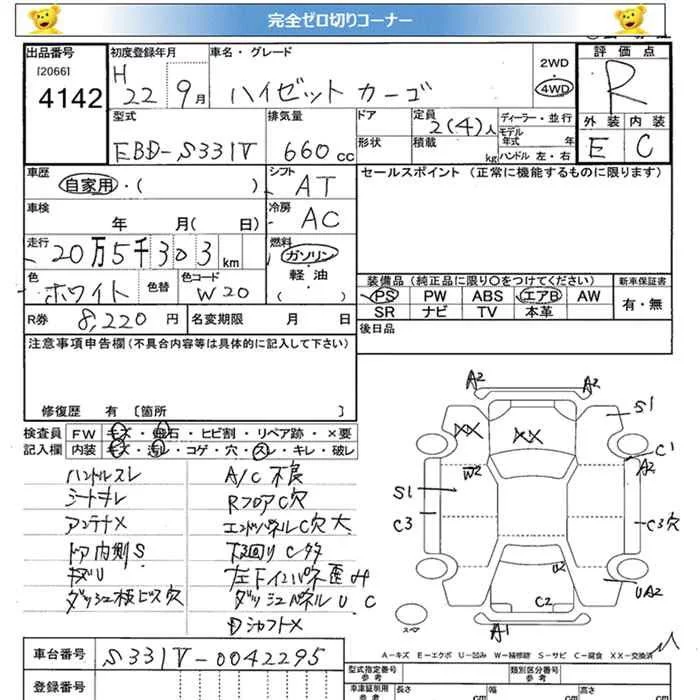 完全ゼロ切りコーナー
出品番号
[2066]
4142
初度登録年月
H 22 9月
車名・グレード
ハイゼット カーゴ
2WD
4WD
評価点
R
外装 内装
E C
型式
EBD-S331V
排気量
660cc
ドア
形状
定員
2(4)人
積載
kg
ディーラー・並行
モデル年式 年
ハンドル 左・右
車歴
自家用・( )
シフト
AT
セールスポイント (正常に機能するものに限ります)
車検
年 月( 日)
冷房
AC
走行
20万5千303km
燃料
ガソリン
軽油
( )
色
ホワイト
色替
色コード
W20
装備品 (純正品に限り○をつけてください)
新車保証書
PS PW ABS エアB AW
有・無
SR ナビ TV 本革
R券 8,220円
名変期限 月 日
後日品
注意事項申告欄 (不具合内容等は具体的に記入して下さい)
修復歴 有 〔箇所 〕
検査員 FW キズ・飛石・ヒビ割・リペア跡・×要
記入欄 内装 キズ・汚レ・コゲ・穴・スレ・キレ・破レ
ハンドルスレ
シートキレ
アンテナX
ドア内側S
ダッシュ板ビス穴
A/C不良
RフロアC穴
エンドパネルC穴大
下回りC多
左下インパネ歪み
ダッシュパネルU、C
シャフトX
A2 A2
S1
XX XX
C1
A2
W2
S1
C3
C3穴
U2
UA2
C2
A1
スペア
A-キズ E-エクボ U-凹み W-補修跡 S-サビ C-腐食 XX-交換済
車台番号
S331V-0042295
登録番号
型式指定番号
参考
類別区分番号
参考
車庫証明用
参考
長さ cm
幅 cm
高さ cm